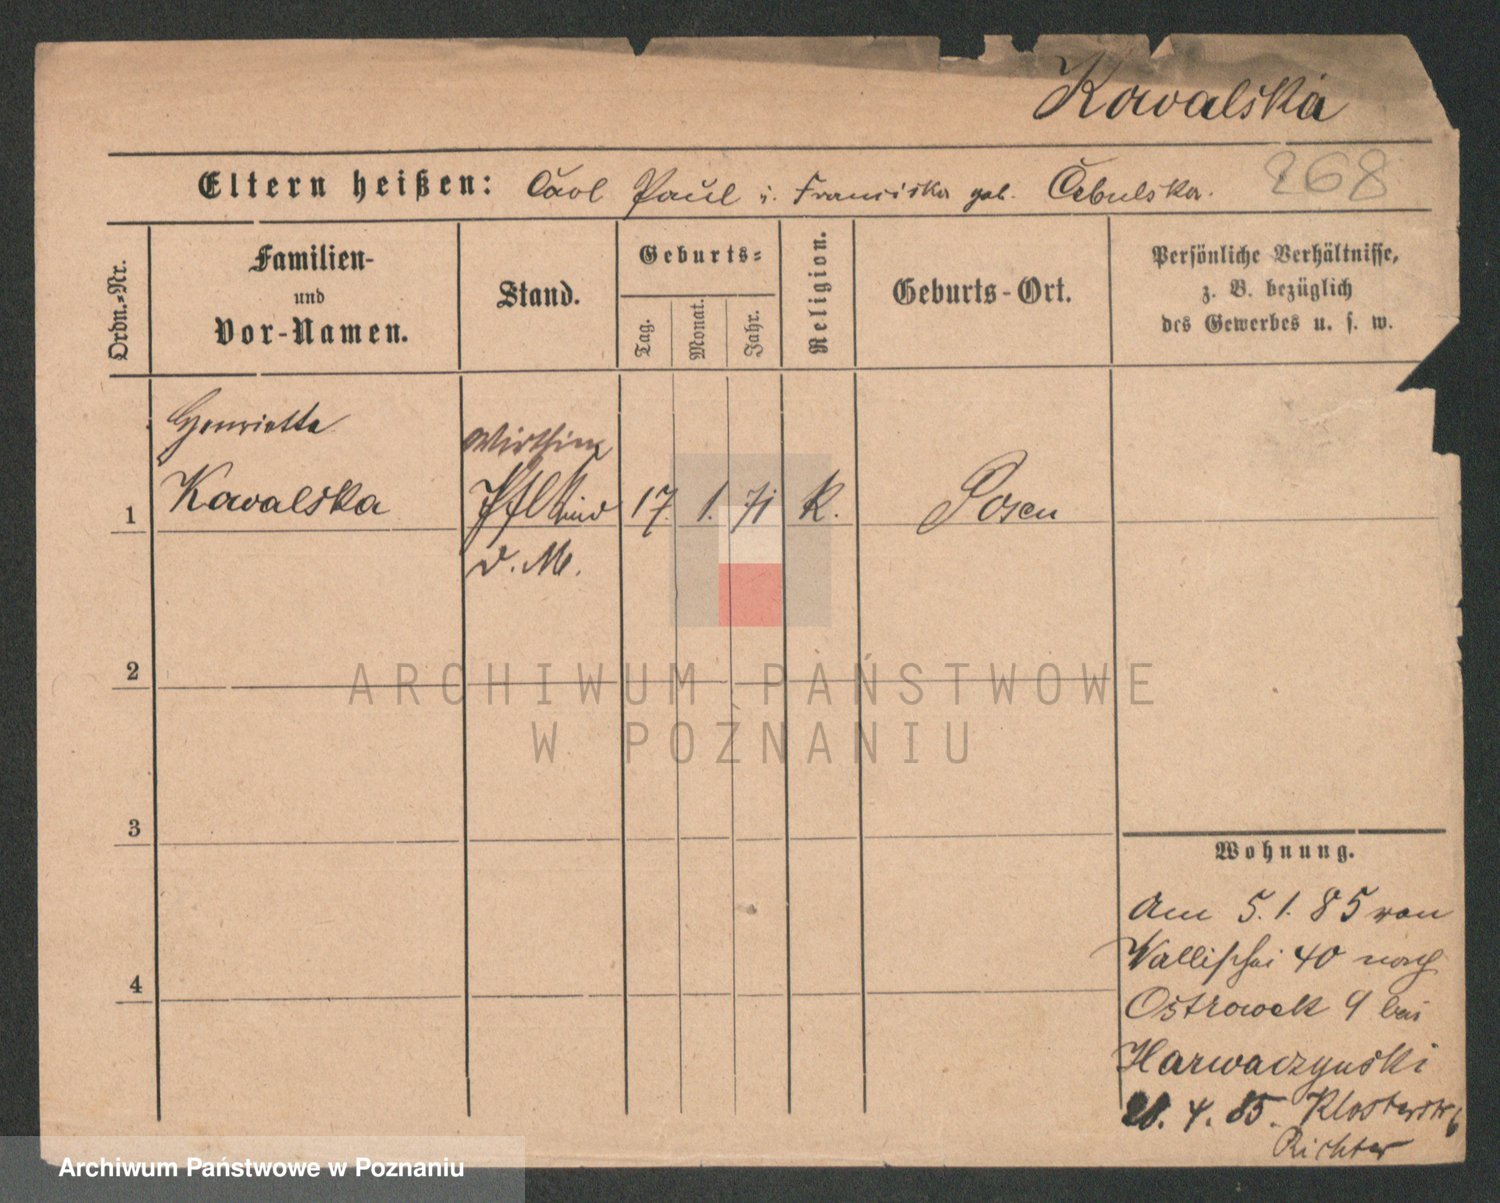 Kowalska
Eltern heißen: Carl Paul u. Franciska geb. Cebulska.
268
Ordn.-Nr.
Familien-
und
Vor-Namen.
Stand.
Geburts-
Tag.
Monat.
Jahr.
Religion.
Geburts-Ort.
Persönliche Verhältnisse,
z. B. bezüglich
des Gewerbes u. s. w.
Henriette
Wirthin
1 Kowalska Pflkind 17. 1. 71 K. Posen
d. M.
2
3
4
Wohnung.
Am 5. 1. 85 von
Wallischei 40 nach
Ostrowek 9 bei
Harwaczynski
28. 4. 85. Klosterstr 6
Richter
ARCHIWUM PAŃSTWOWE
W POZNANIU
Archiwum Państwowe w Poznaniu